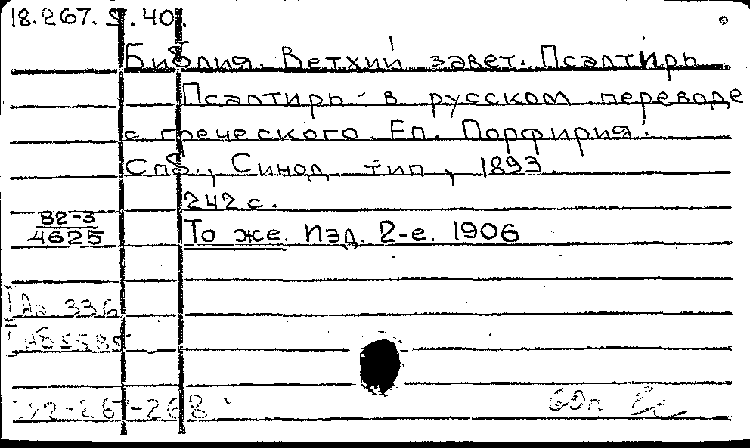 18.267.5.40.
Библия. Ветхий завет. Псалтирь
Псалтирь в русском переводе
с греческого Еп. Порфирия.
Спб., Синод. тип., 1893.
242 с.
В2-3
4625
То же. Изд. 2-е. 1906
336